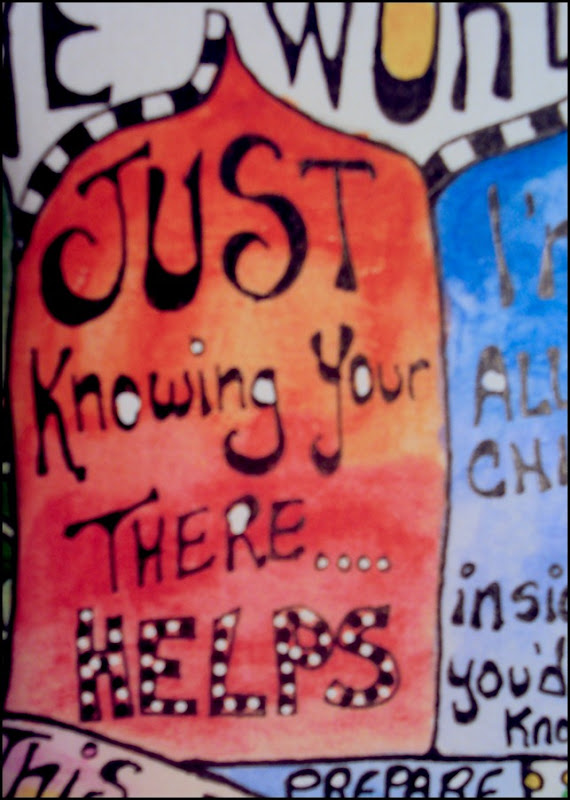 JUST
Knowing Your
THERE....
HELPS
insi
you'd
Kno
This
PREPARE